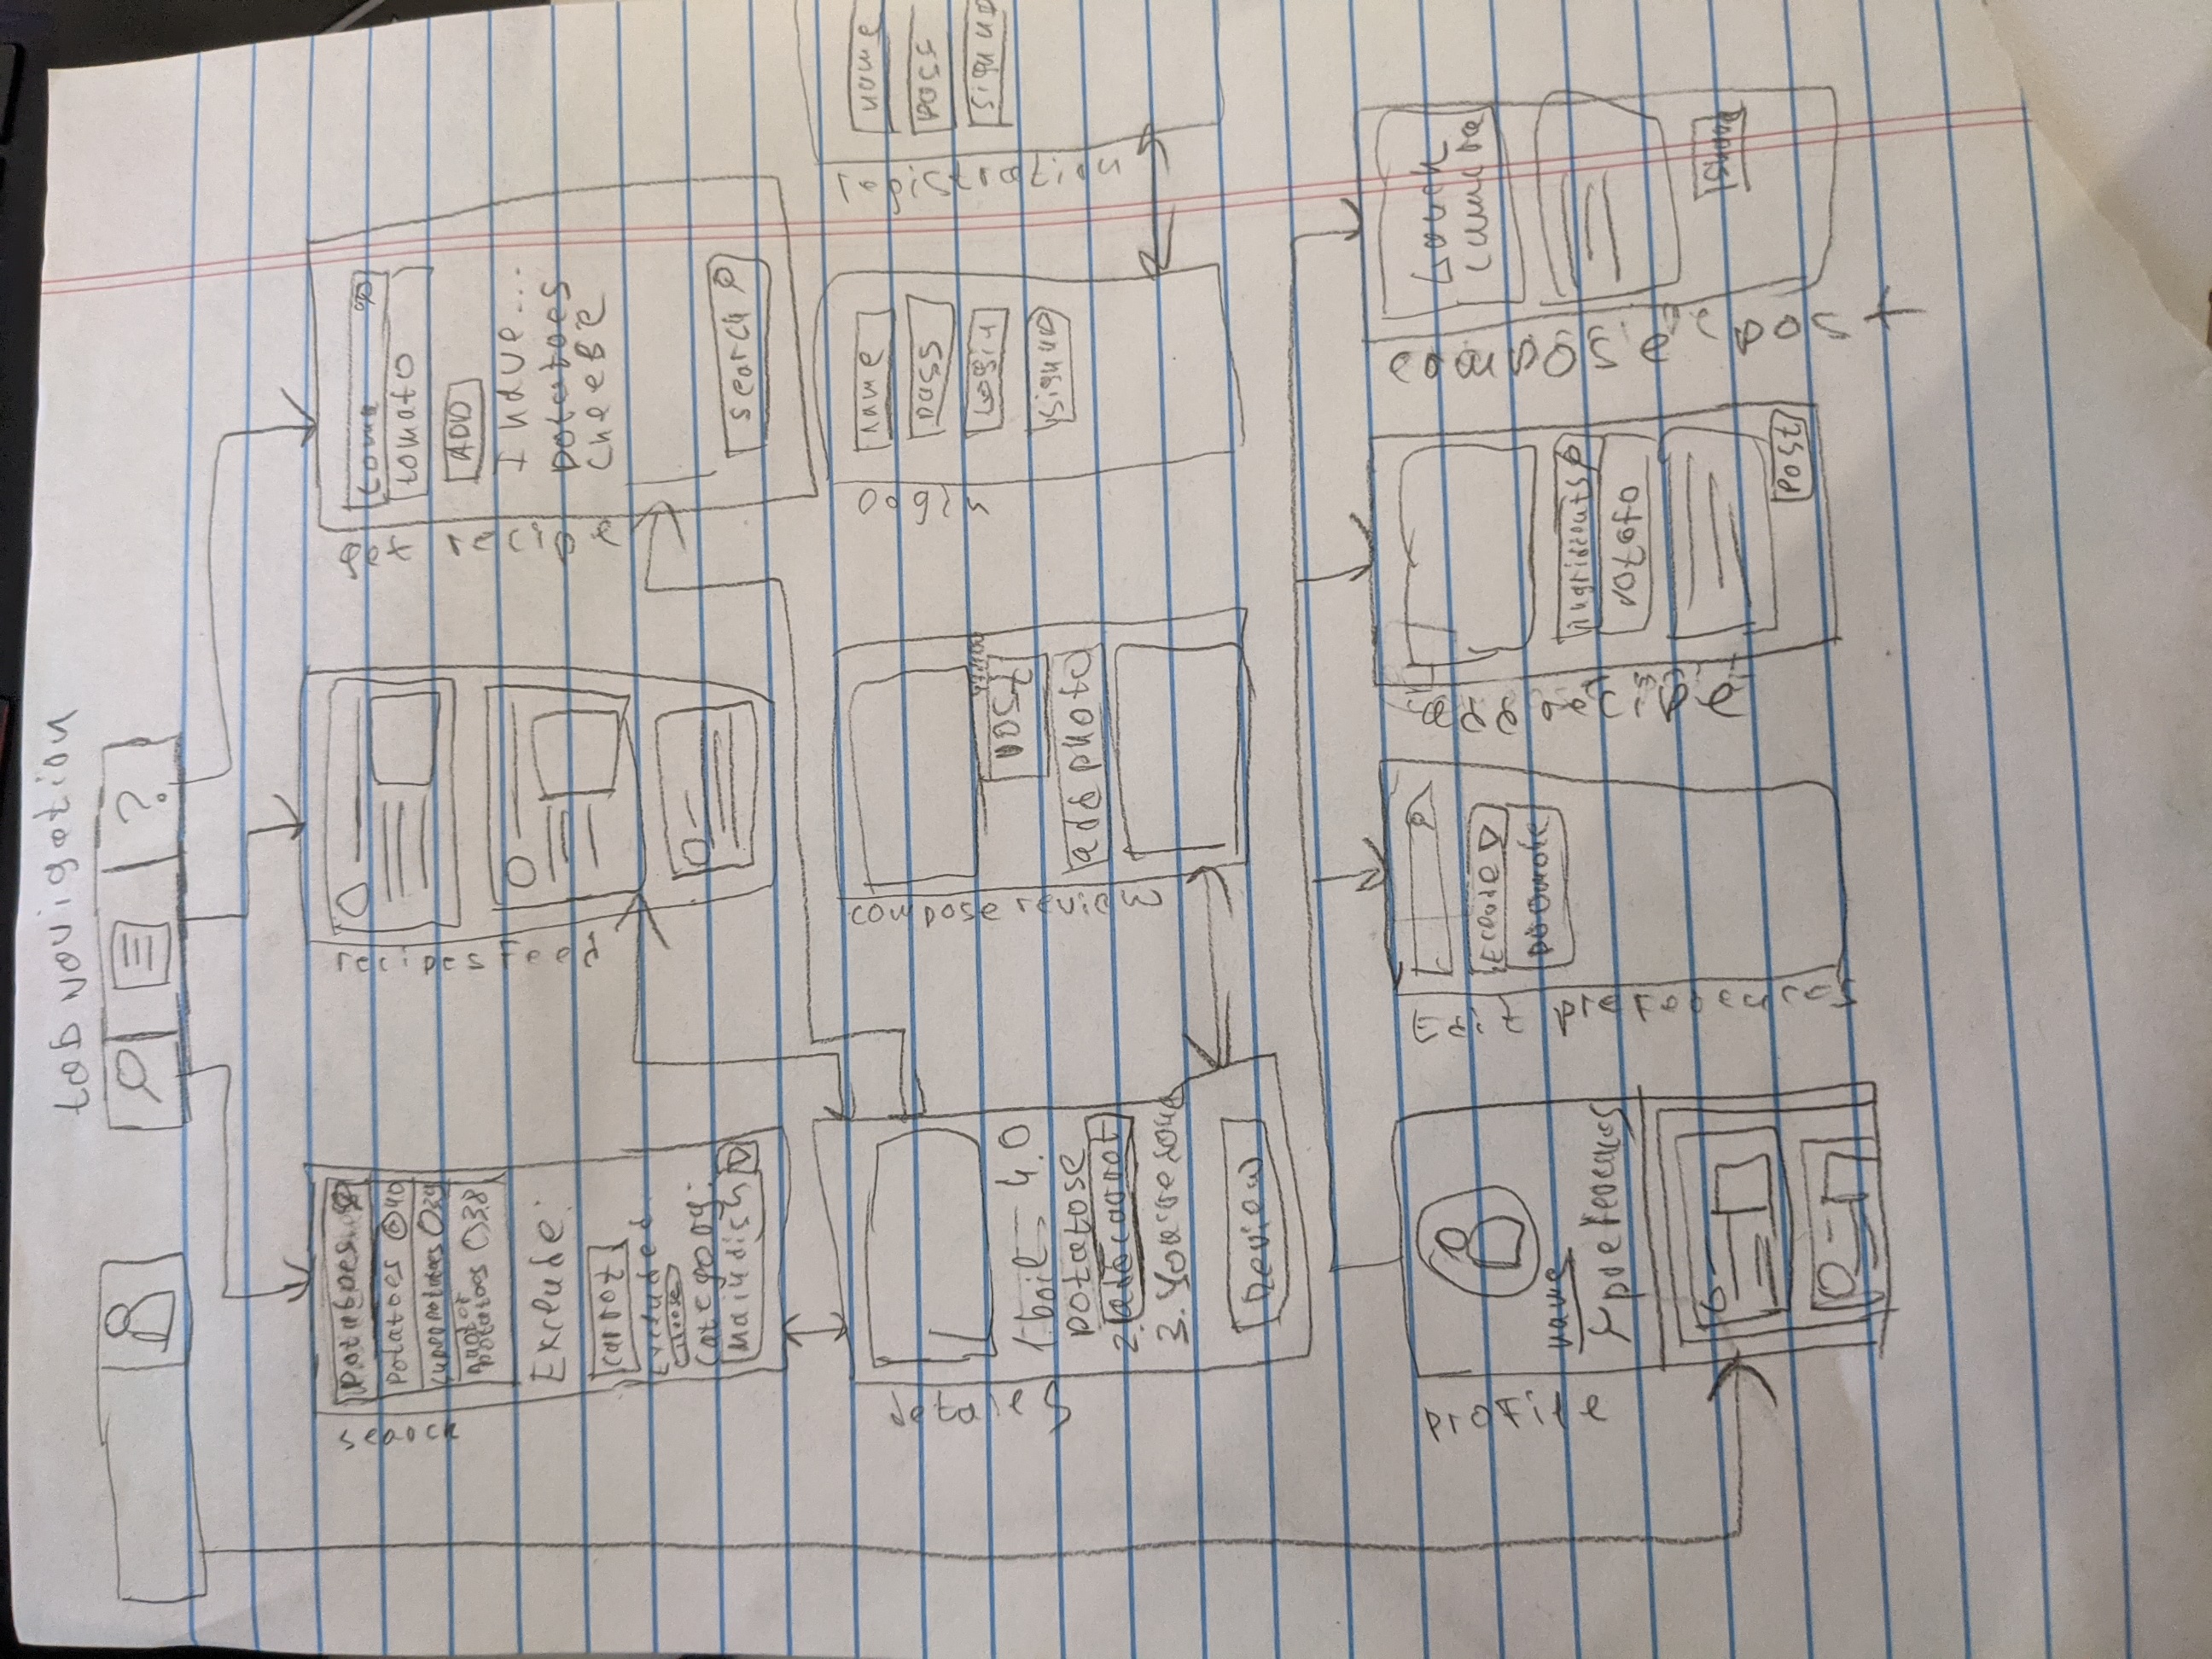 tab navigation
?
search
potatoes
potatoes 40
superpotatoes 39
potatoes 38
Exclude:
carrot
Excluded
cheese
category:
Main dish
recipes Feed
get recipe
toma
tomato
ADD
I have...
potatoes
cheese
search
details
1. boil 4.0
potatose
2. add carrot
3. you're done
Review
compose review
POST
add photo
Login
name
pass
Login
signup
registration
name
pass
signup
profile
name
preferences
Edit preferences
Exclude
promote
ingridients
POST